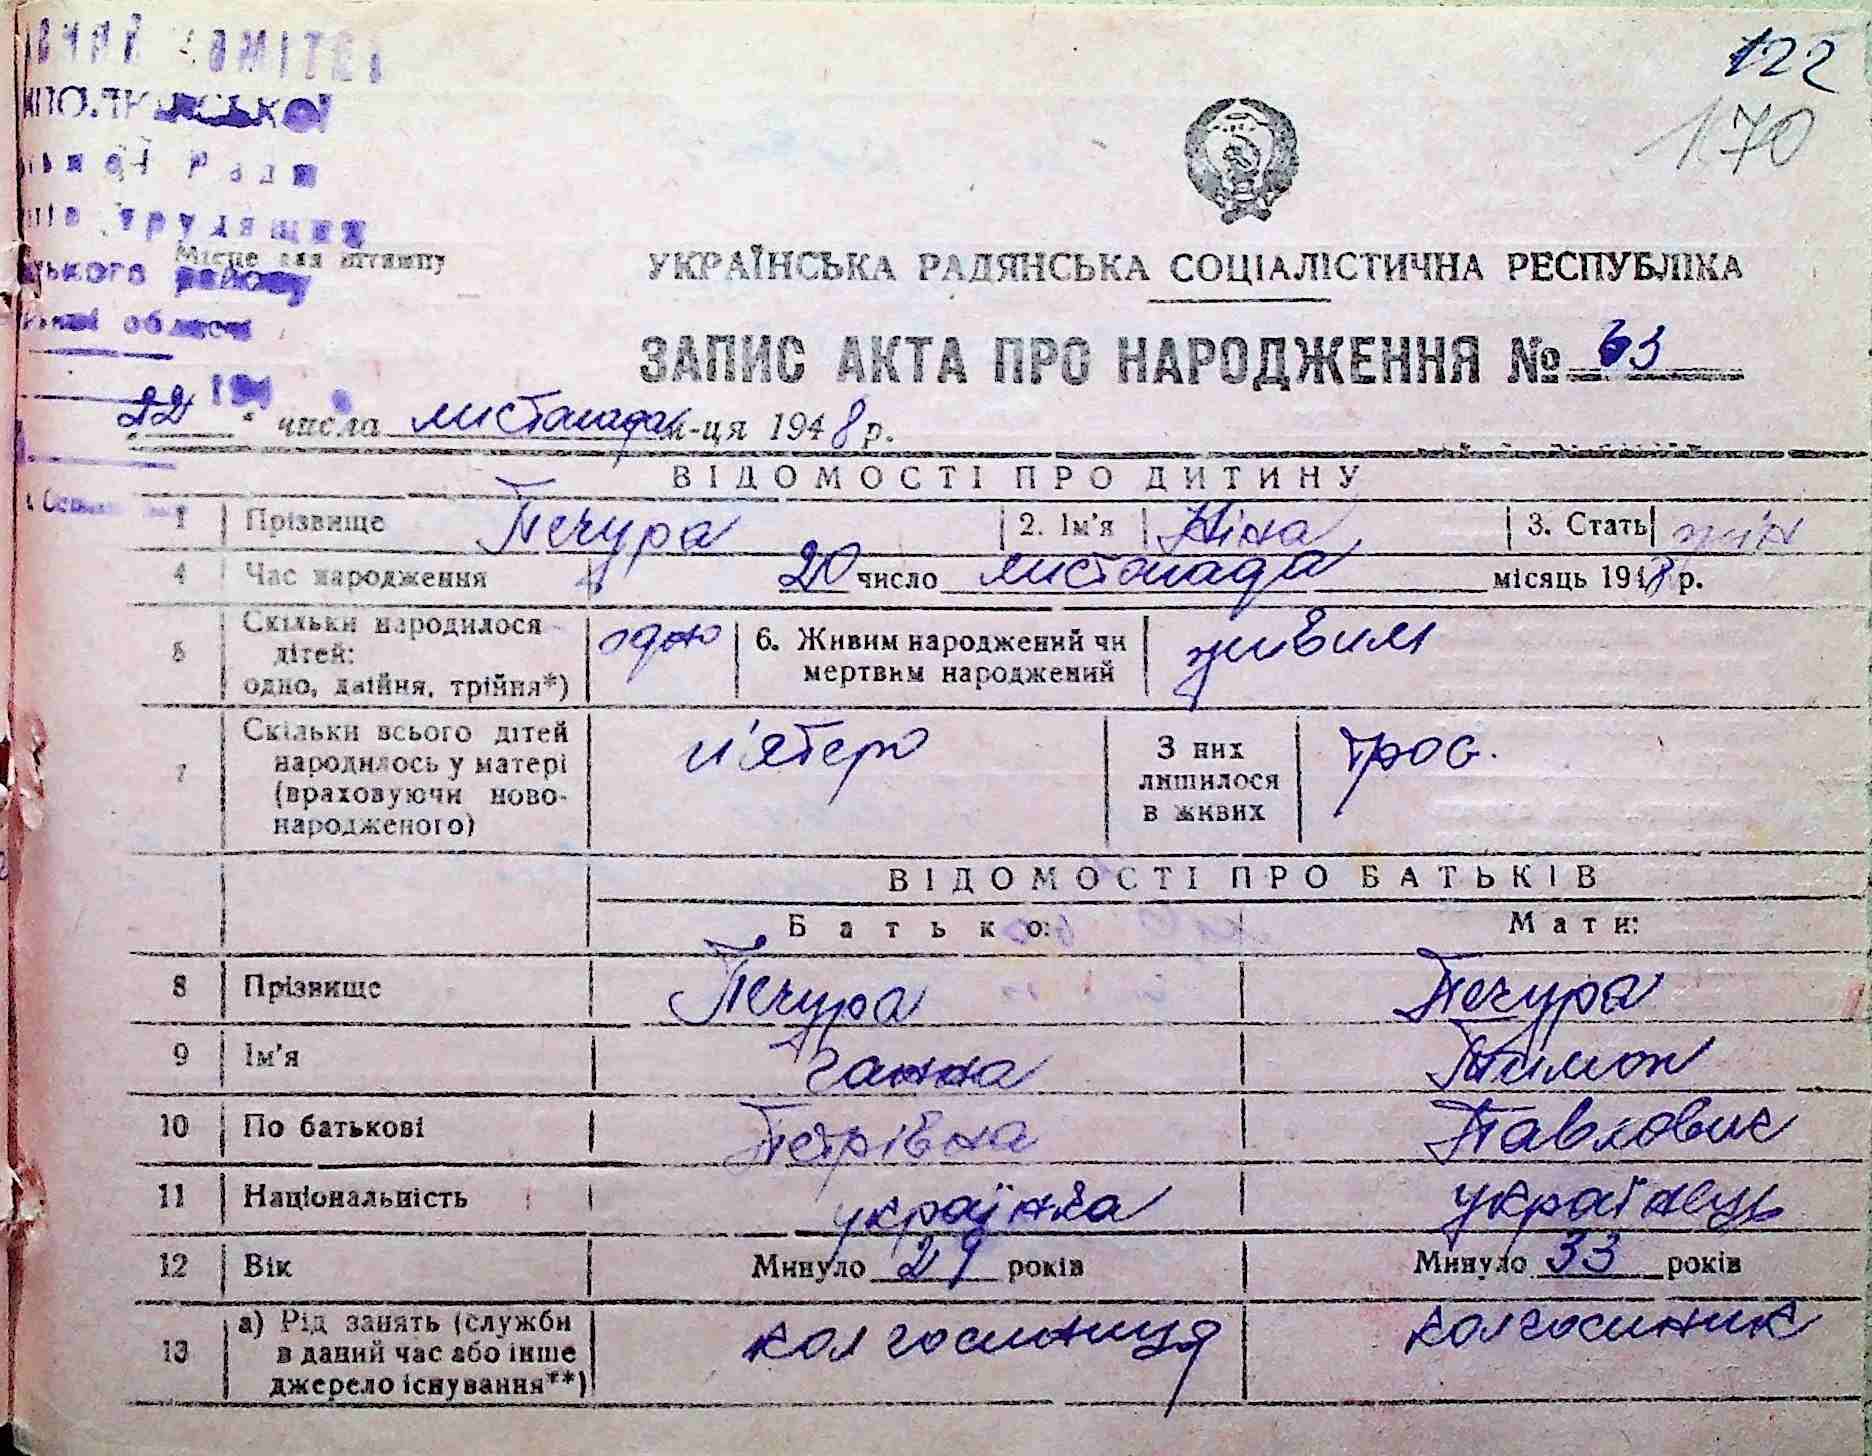 122
170
трудящих
Місце для штампу
ького району
області
УКРАЇНСЬКА РАДЯНСЬКА СОЦІАЛІСТИЧНА РЕСПУБЛІКА
ЗАПИС АКТА ПРО НАРОДЖЕННЯ № 63
194
22 " числа листопада м-ця 1948 р.
ВІДОМОСТІ ПРО ДИТИНУ
1 Прізвище Печура 2. Ім'я Ніна 3. Стать жін
4 Час народження 20 число листопада місяць 1948 р.
5 Скільки народилося дітей: одно, двійня, трійня*) одно 6. Живим народжений чи мертвим народжений живим
7 Скільки всього дітей народилось у матері (враховуючи новонародженого) п'ятеро З них лишилося в живих троє.
ВІДОМОСТІ ПРО БАТЬКІВ
Батько: Мати:
8 Прізвище Печура Печура
9 Ім'я Ганна Тимош
10 По батькові Петрівна Павлович
11 Національність українка українець
12 Вік Минуло 29 років Минуло 33 років
13 а) Рід занять (служби в даний час або інше джерело існування**) колгоспниця колгоспник